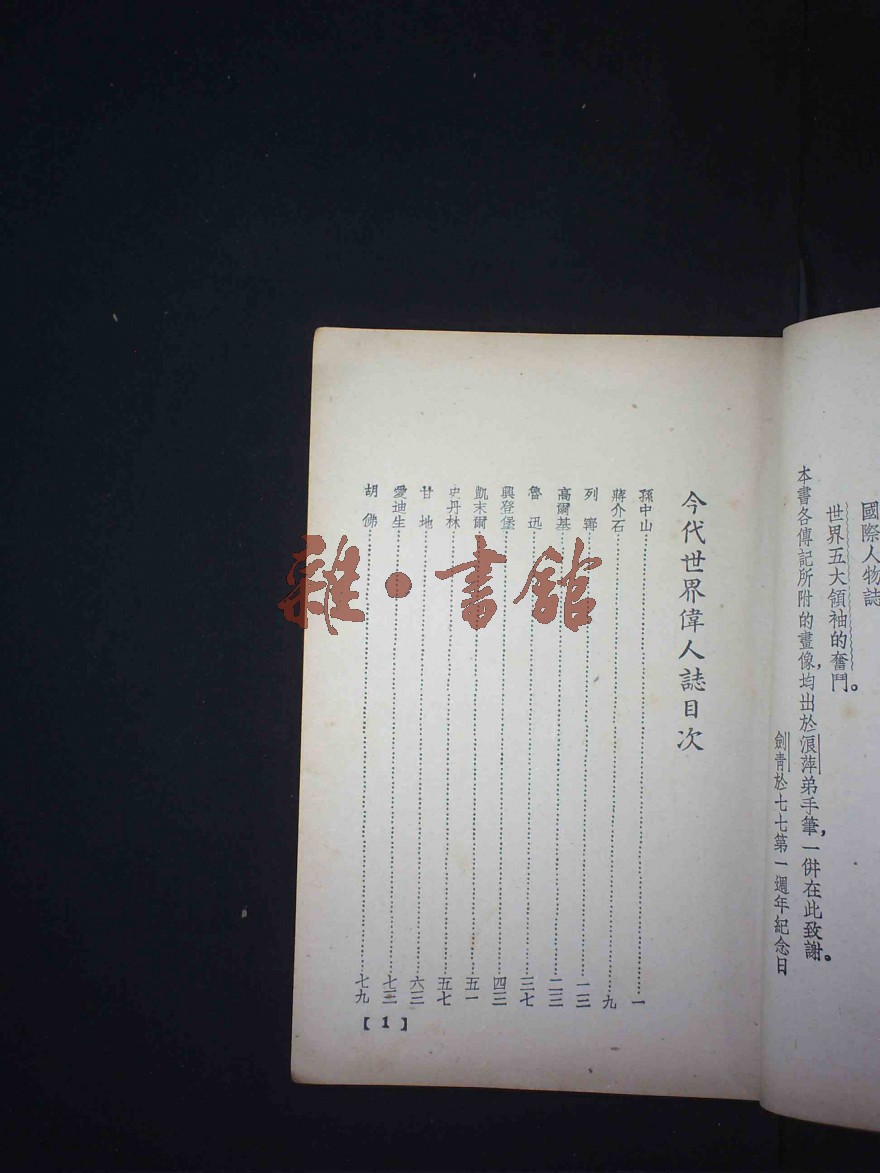 國際人物誌
世界五大領袖的奮鬥。
本書各傳記所附的畫像,均出於浪萍弟手筆,一併在此致謝。
劍青於七七第一週年紀念日
今代世界偉人誌目次
孫中山⋯⋯一
蔣介石⋯⋯九
列寧⋯⋯一三
高爾基⋯⋯二三
魯迅⋯⋯三七
興登堡⋯⋯四三
凱末爾⋯⋯五一
史丹林⋯⋯五七
甘地⋯⋯六三
愛迪生⋯⋯七三
胡佛⋯⋯七九
【1】
雜·書館